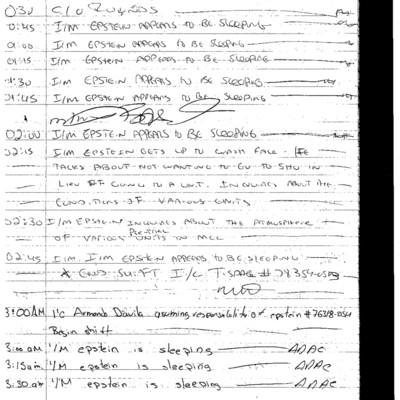 0:30 C/O ROUNDS
00:45 I/M EPSTEIN APPEARS TO BE SLEEPING
01:00 I/M EPSTEIN APPEARS TO BE SLEEPING
01:15 I/M EPSTEIN APPEARS TO BE SLEEPING
01:30 I/M EPSTEIN APPEARS TO BE SLEEPING
01:45 I/M EPSTEIN APPEARS TO BE SLEEPING
02:00 I/M EPSTEIN APPEARS TO BE SLEEPING
02:15 I/M EPSTEIN GETS UP TO WASH FACE. HE
TALKS ABOUT NOT WANTING TO GO TO SHU IN
LIEU OF GOING TO A UNIT. INQUIRIES ABOUT THE
CONDITIONS OF VARIOUS UNITS
02:30 I/M EPSTEIN INQUIRES ABOUT THE ATMOSPHERE
OF VARIOUS PRE-TRIAL UNITS IN MCC
02:45 I/M. I/M EPSTEIN APPEARS TO BE SLEEPING
* END SHIFT I/C T.
3:00AM I/c Armando Davila assuming responsibilities of epstein #76318-054
Begin shift
3:00 am I/M epstein is sleeping
3:15am I/M epstein is sleeping
3:30 am I/M epstein is sleeping